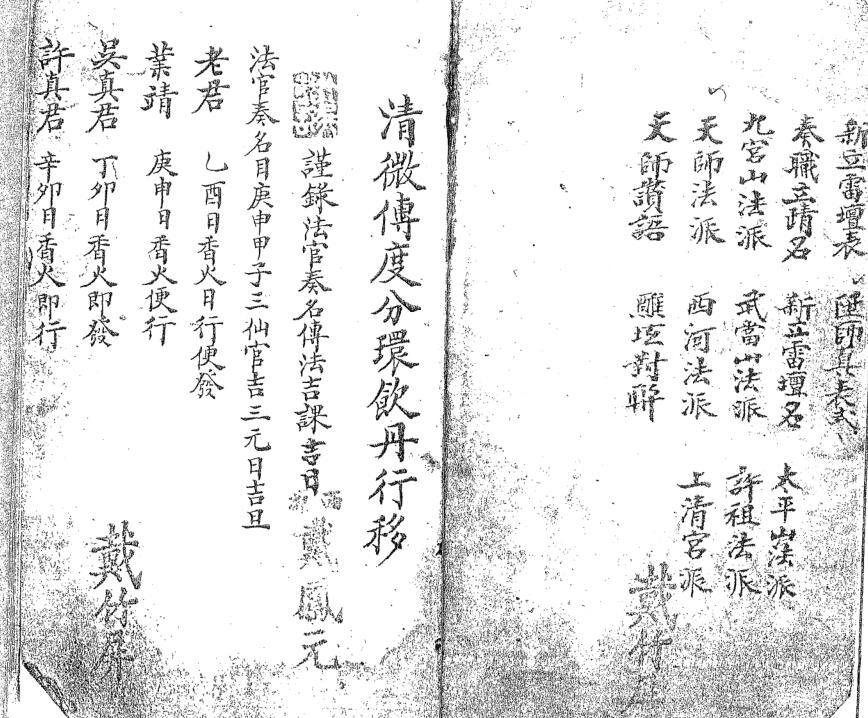 新立雷壇表
奏職立靖名 新立雷壇名 太平山法派
九宮山法派 武當山法派 許祖法派
天師法派 西河法派 上清宮派
天師讚語 醮壇對聯
戴竹
清微傳度分環飲丹行移
謹錄法官奏名傳法吉課吉日
戴鳳元
法官奏名目庚申甲子三仙官吉三元日吉旦
老君 乙酉日香火日行便發
葉靖 庚申日香火便行
吳真君 丁卯日香火即發
許真君 辛卯日香火即行
戴竹屏